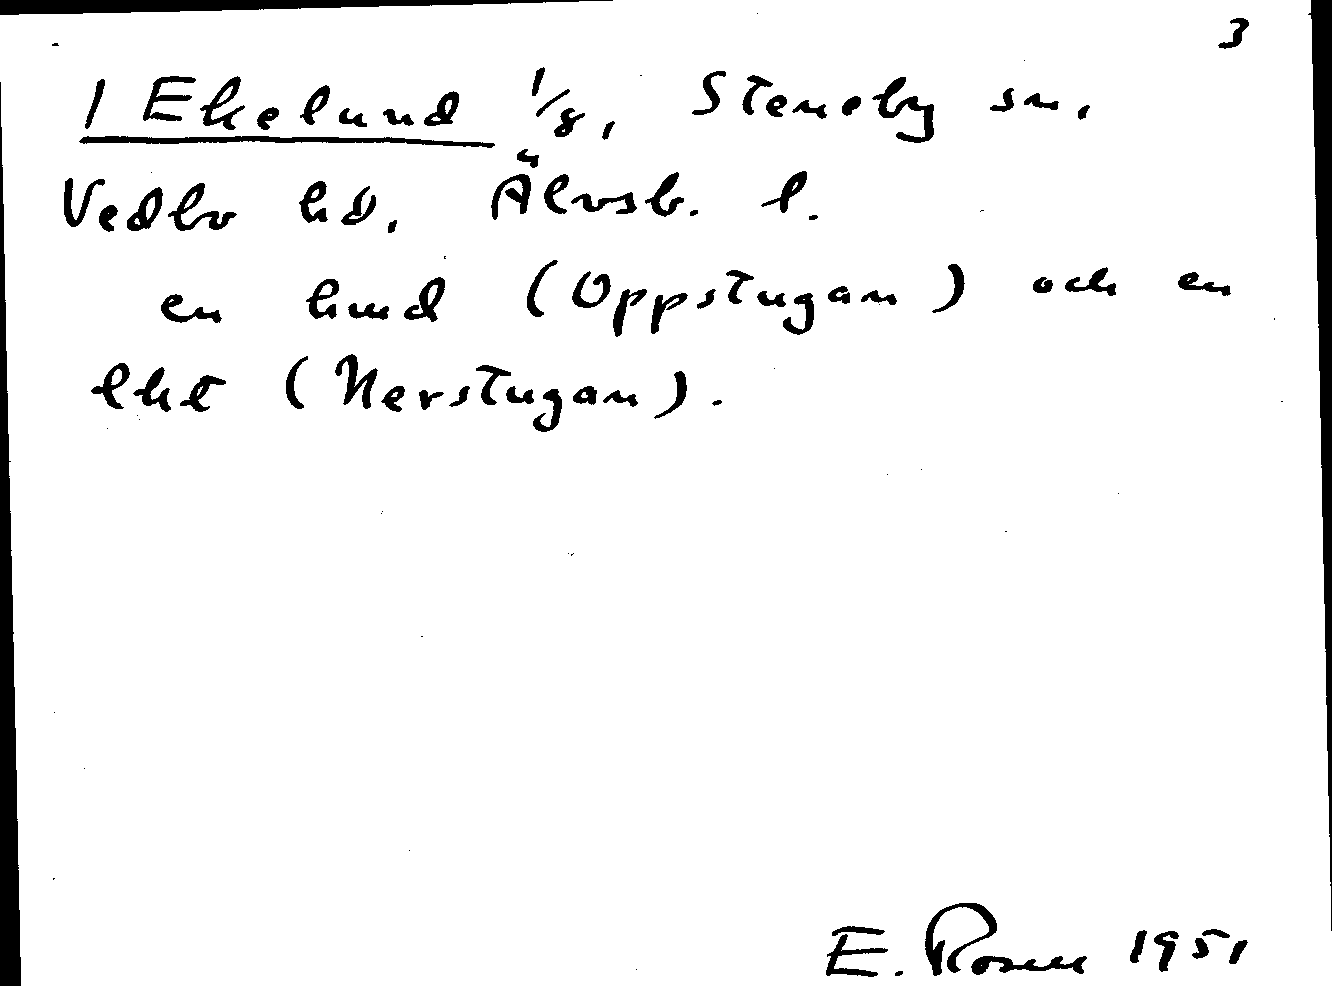 3
1 Ekelund 1/8, Steneby sn,
Vedbo hd, Älvsb. l.
en hmd (Oppstugan) och en
lht (Nerstugan).
E. Rosén 1951